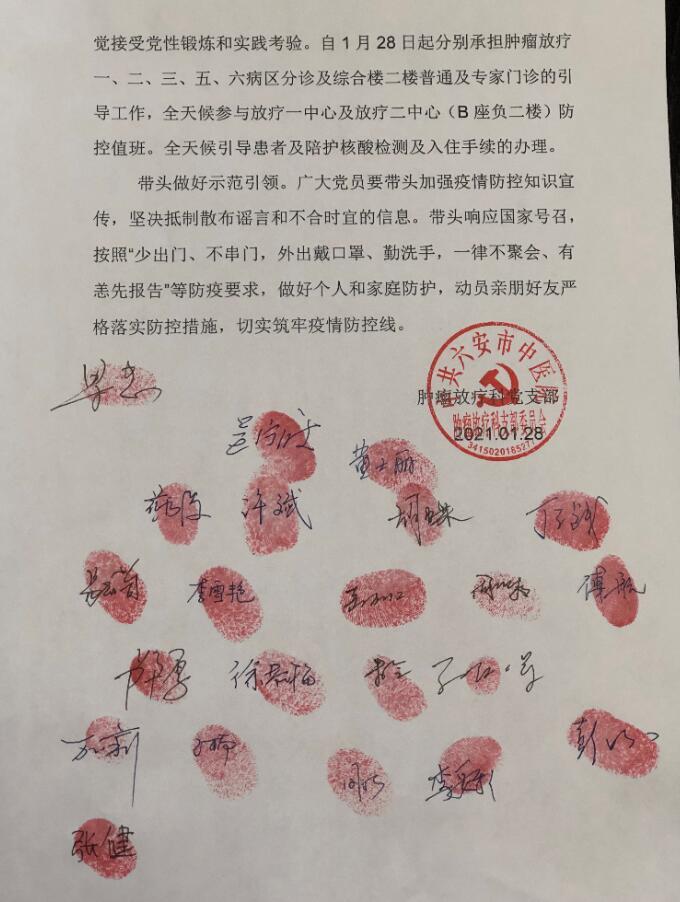 觉接受党性锻炼和实践考验。自1月28日起分别承担肿瘤放疗
一、二、三、五、六病区分诊及综合楼二楼普通及专家门诊的引
导工作，全天候参与放疗一中心及放疗二中心（B座负二楼）防
控值班。全天候引导患者及陪护核酸检测及入住手续的办理。
带头做好示范引领。广大党员要带头加强疫情防控知识宣
传，坚决抵制散布谣言和不合时宜的信息。带头响应国家号召，
按照“少出门、不串门，外出戴口罩、勤洗手，一律不聚会、有
恙先报告”等防疫要求，做好个人和家庭防护，动员亲朋好友严
格落实防控措施，切实筑牢疫情防控线。
中共六安市中医院
肿瘤放疗科党支部
肿瘤放疗科支部委员会
2021.01.28
许斌
李雪艳 傅航
张健